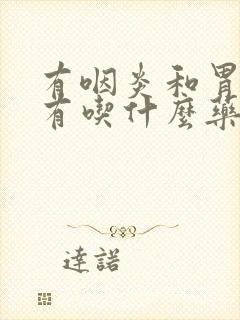 有咽炎和胃
有喫什麼藥
達諾